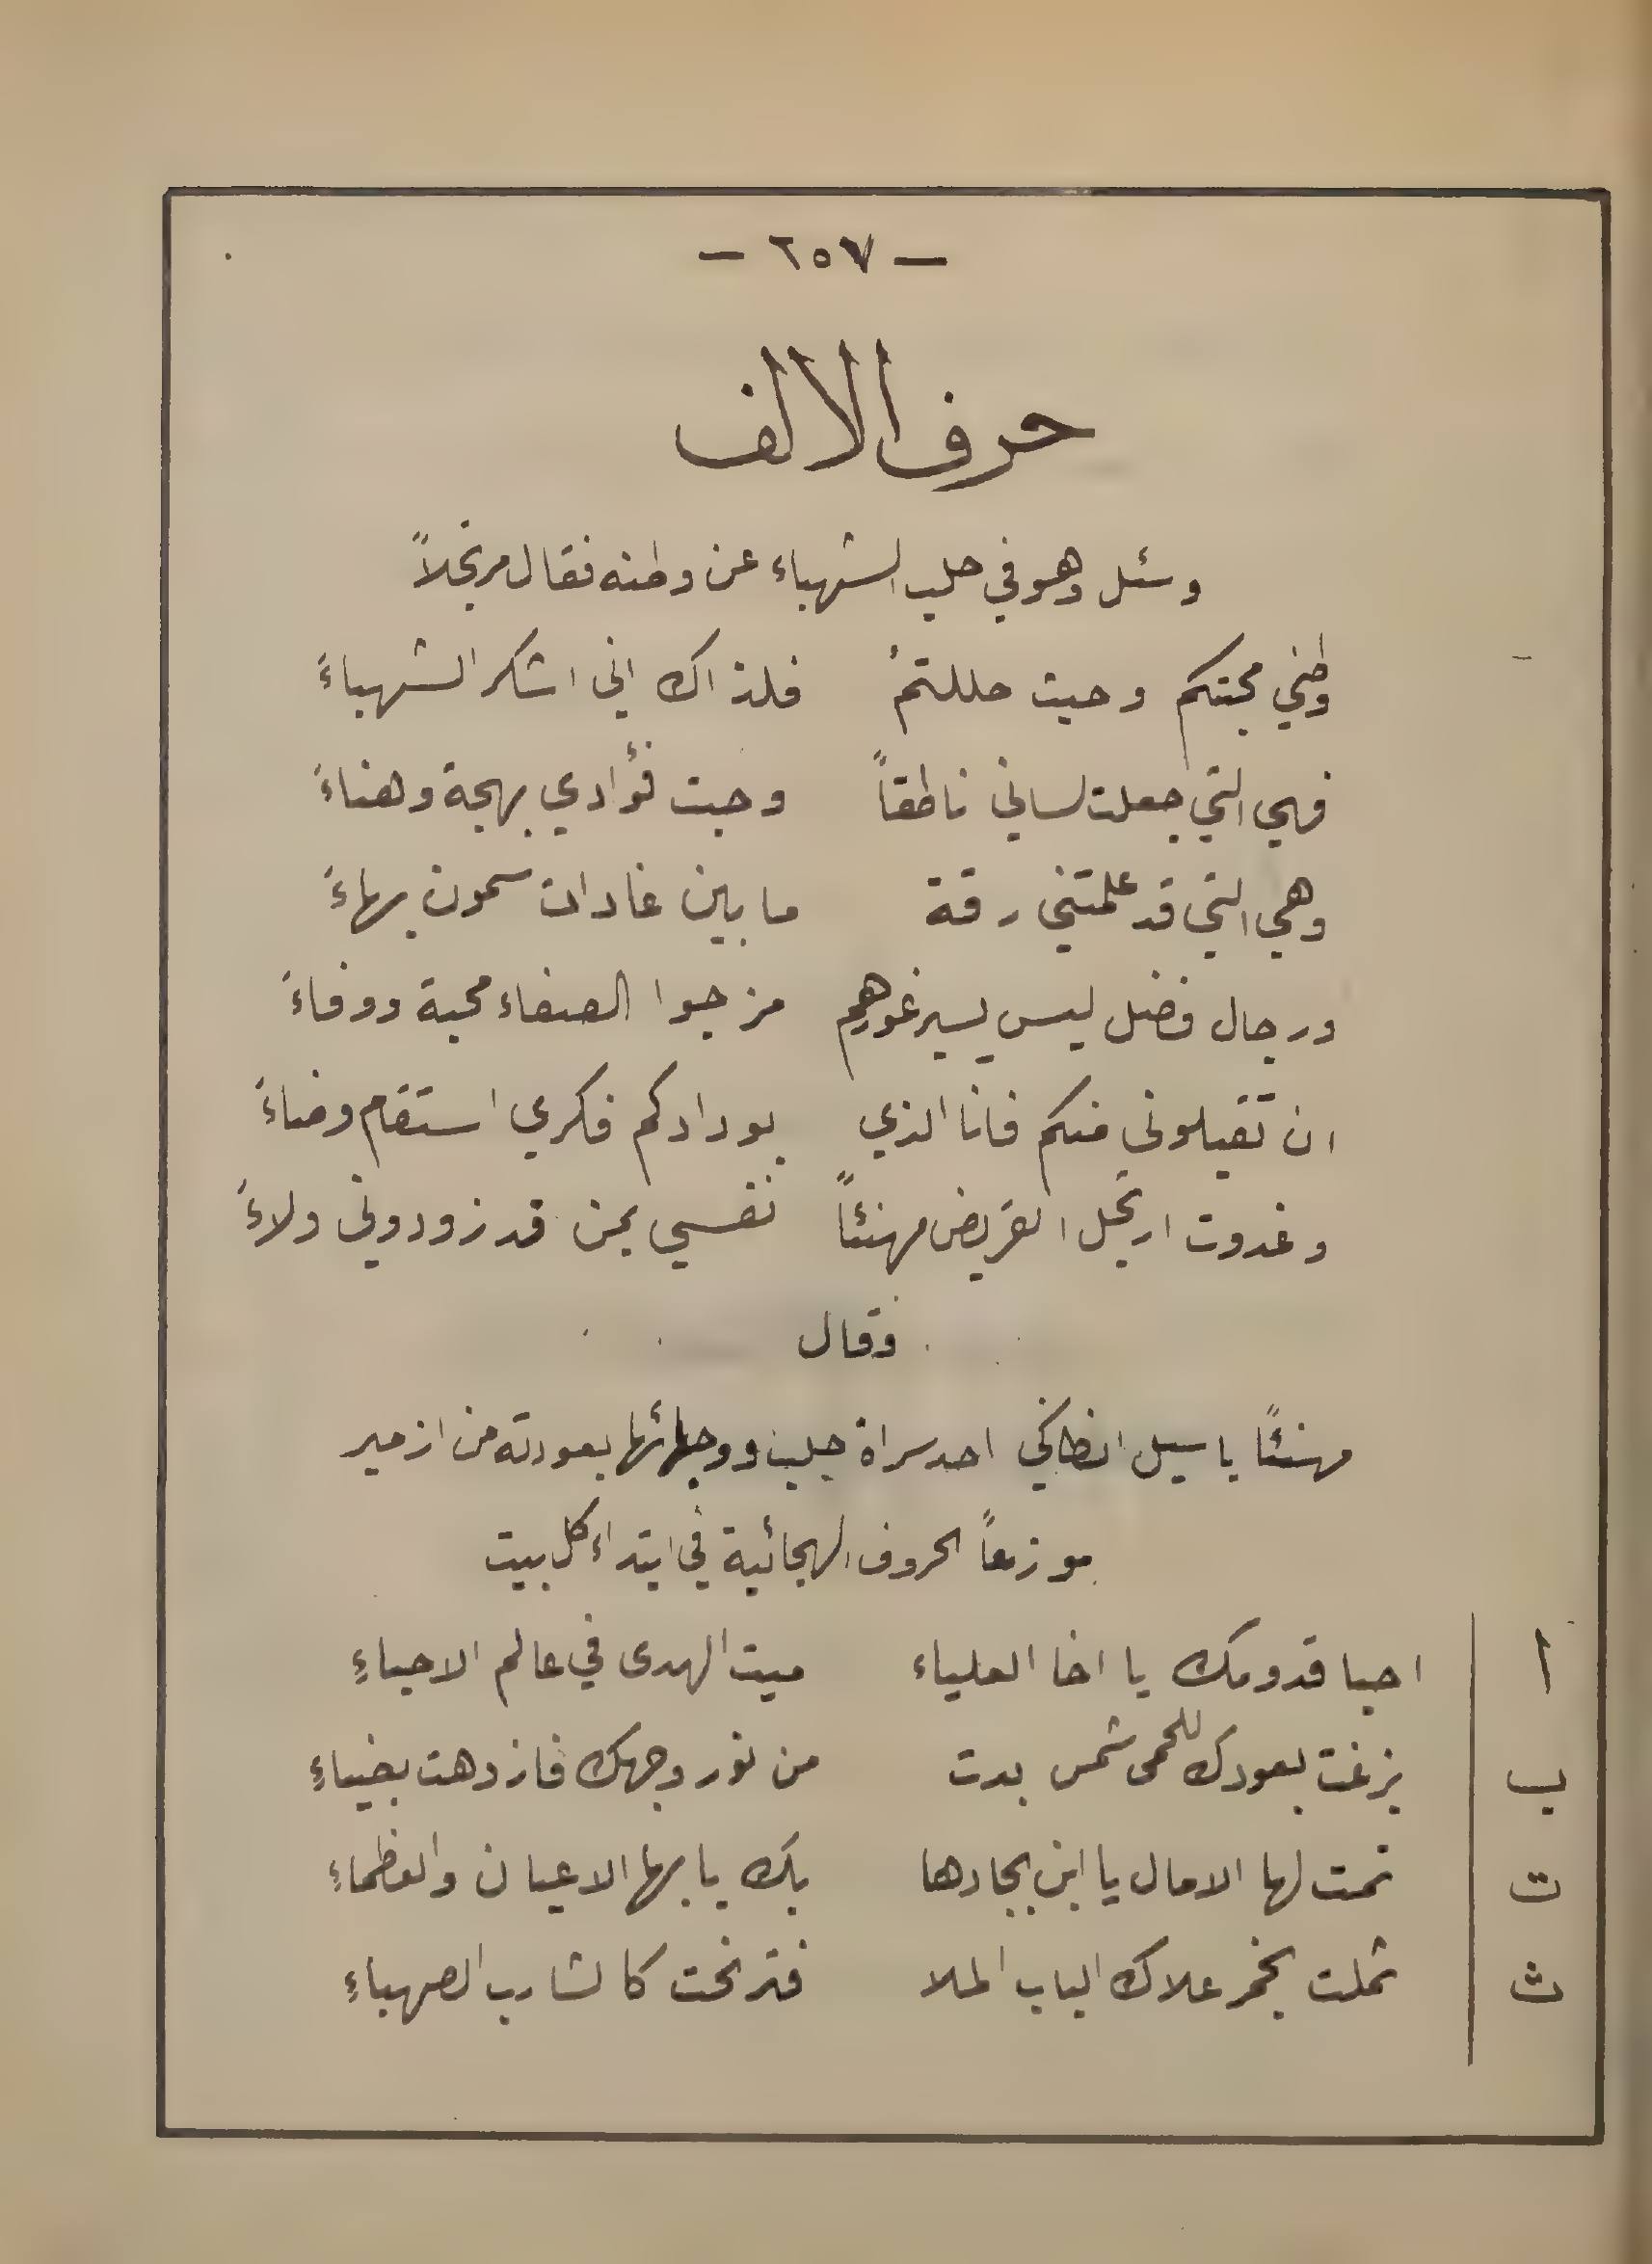 — ٦٥٧ —
حرف الالف
وسئل وهو في حلب الشهباء عن وطنه فقال مرتجلاً
وطني محبتكم وحيث حللتمُ فلذاك اني اشكر الشهباءَ
فهي التي جعلت لساني ناطقاً وحبت فؤادي بهجة وهناءَ
وهي التي قد علمتني رقة ما بين غادات سمون بهاءَ
ورجال فضل ليس يسبر غورهم مزجوا الصفاء محبة ووفاءَ
ان تقبلوني منكم فانا الذي بودادكم فكري استقام وضاءَ
وغدوت ارتجل القريض مهنئاً نفسي بمن قد زودوني ولاءَ
وقال
مهنئاً باسيل انطاكي احد سراة حلب ووجهائها بعودته من ازمير
موزعاً الحروف الهجائية في ابتداء كل بيت
ا احيا قدومك يا اخا العلياء ميت الهدى في عالم الاحياءِ
ب بزغت بعودك للحمى شمس بدت من نور وجهك فازدهت بضياءِ
ت تمت لها الامال يا ابن بجادها بك يا بها الاعيان والعظماءِ
ث ثملت بخمر علاك الباب الملا فترنحت كالشارب الصهباءِ